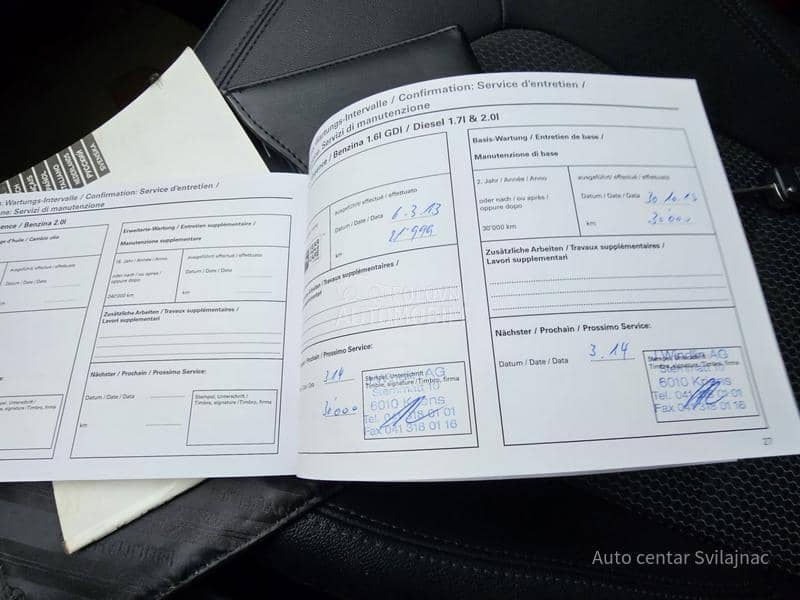 SVENSKA
РУССКИЙ
: Wartungs-Intervalle / Confirmation: Service d'entretien /
Servizi di manutenzione
ence / Benzina 2.0l
ge d'huile / Cambio olio
ausgeführt / effectué / effettuato
Datum / Date / Data
km
Stempel, Unterschrift /
Timbre, signature / Timbro, firma
Erweiterte-Wartung / Entretien supplémentaire /
Manutenzione supplementare
16. Jahr / Année / Anno
oder nach / ou après /
oppure dopo
240'000 km
ausgeführt / effectué / effettuato
Datum / Date / Data
km
Zusätzliche Arbeiten / Travaux supplémentaires /
Lavori supplementari
Nächster / Prochain / Prossimo Service:
Datum / Date / Data
km
Stempel, Unterschrift /
Timbre, signature / Timbro, firma
Wartungs-Intervalle / Confirmation: Service d'entretien /
Servizi di manutenzione
Benzina 1.6l GDI / Diesel 1.7l & 2.0l
ausgeführt / effectué / effettuato
Datum / Date / Data 6.3.13
km 21'999
Arbeiten / Travaux supplémentaires /
supplementari
/ Prochain / Prossimo Service:
Data 3.14
30'000
Stempel, Unterschrift /
Timbre, signature / Timbro, firma
6010 Kriens
Tel. 041 318 01 01
Fax 041 318 01 16
Basis-Wartung / Entretien de base /
Manutenzione di base
2. Jahr / Année / Anno
oder nach / ou après /
oppure dopo
30'000 km
ausgeführt / effectué / effettuato
Datum / Date / Data 30.10.13
km 30'000
Zusätzliche Arbeiten / Travaux supplémentaires /
Lavori supplementari
Nächster / Prochain / Prossimo Service:
Datum / Date / Data 3.14
Stempel, Unterschrift /
Timbre, signature / Timbro, firma
AG
6010 Kriens
Tel. 041 318 01 01
Fax 041 318 01 16
27
POLOVNI
AUTOMOBILI
Auto centar Svilajnac